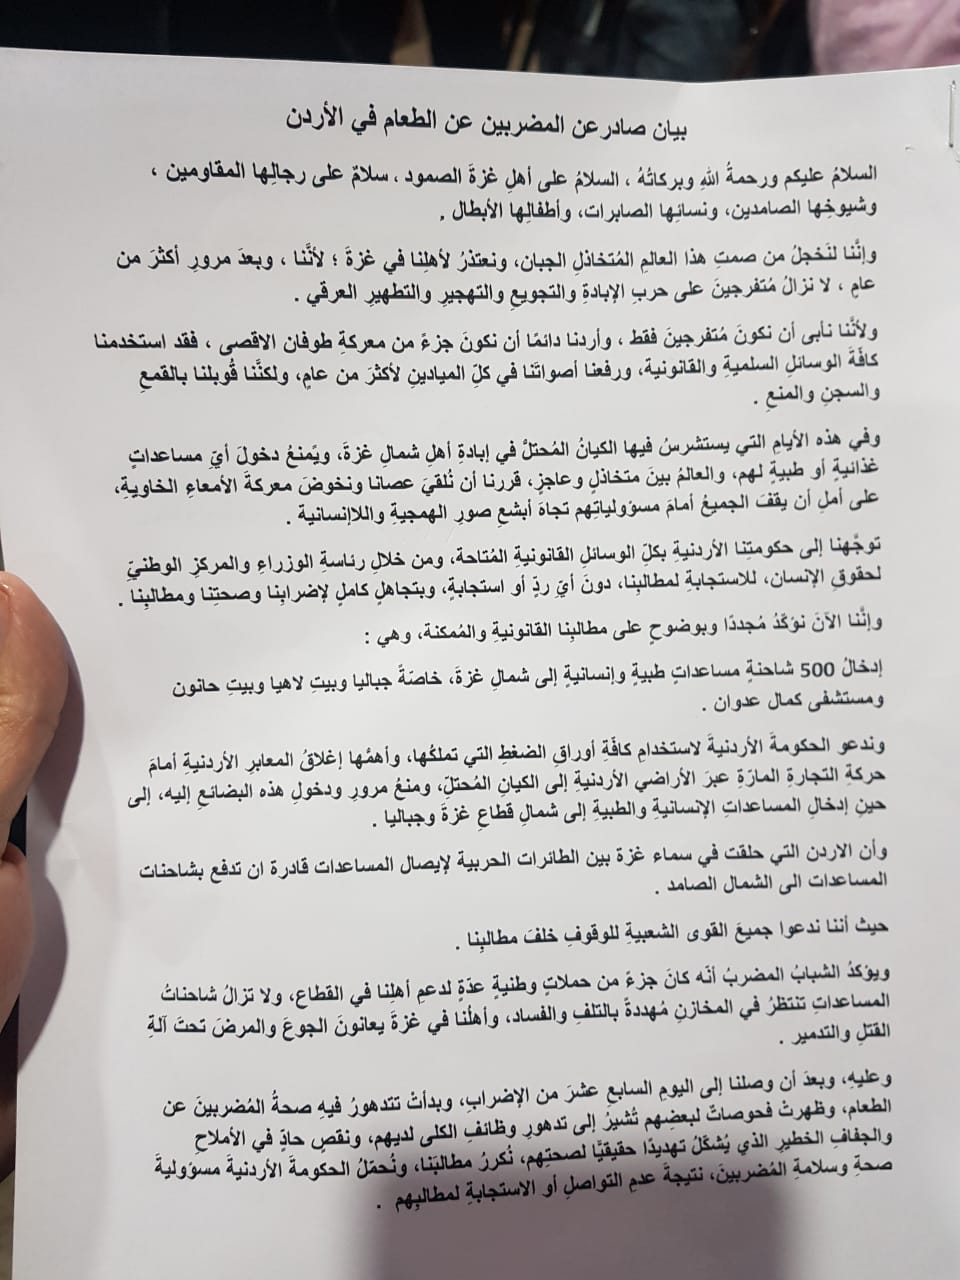 بيان صادر عن المضربين عن الطعام في الأردن
السلامُ عليكم ورحمةُ اللهِ وبركاتُهُ ، السلامُ على أهلِ غزةَ الصمود ، سلامٌ على رجالِها المقاومين ،
وشيوخِها الصامدين، ونسائِها الصابرات، وأطفالِها الأبطال .
وإنَّنا لنَخجلُ من صمتِ هذا العالمِ المُتخاذلِ الجبان، ونعتذرُ لأهلِنا في غزةَ ؛ لأنَّنا ، وبعدَ مرورِ أكثرَ من
عامٍ ، لا نزالُ مُتفرجينَ على حربِ الإبادةِ والتجويعِ والتهجيرِ والتطهيرِ العرقي .
ولأنَّنا نأبى أن نكونَ مُتفرجينَ فقط ، وأردنا دائمًا أن نكونَ جزءً من معركةِ طوفان الاقصى ، فقد استخدمنا
كافّةَ الوسائلِ السلميةِ والقانونية، ورفعنا أصواتَنا في كلِّ الميادينِ لأكثرَ من عامٍ، ولكنَّنا قُوبلنا بالقمعِ
والسجنِ والمنعِ .
وفي هذه الأيامِ التي يستشرسُ فيها الكيانُ المُحتلُّ في إبادةِ أهلِ شمالِ غزةَ، ويَمنعُ دخولَ أيِّ مساعداتٍ
غذائيةٍ أو طبيةٍ لهم، والعالمُ بينَ متخاذلٍ وعاجزٍ، قررنا أن نُلقيَ عصانا ونخوضَ معركةَ الأمعاءِ الخاويةِ،
على أملِ أن يقفَ الجميعُ أمامَ مسؤولياتِهم تجاهَ أبشعِ صورِ الهمجيةِ واللاإنسانية .
توجَّهنا إلى حكومتِنا الأردنيةِ بكلِّ الوسائلِ القانونيةِ المُتاحة، ومن خلالِ رئاسةِ الوزراءِ والمركزِ الوطنيِّ
لحقوقِ الإنسان، للاستجابةِ لمطالبِنا، دونَ أيِّ ردٍّ أو استجابةٍ، وبتجاهلٍ كاملٍ لإضرابِنا وصحتِنا ومطالبِنا .
وإنَّنا الآنَ نؤكّدُ مُجددًا وبوضوحٍ على مطالبِنا القانونيةِ والمُمكنة، وهي :
إدخالُ 500 شاحنةِ مساعداتٍ طبيةٍ وإنسانيةٍ إلى شمالِ غزةَ، خاصّةً جباليا وبيتِ لاهيا وبيتِ حانون
ومستشفى كمال عدوان .
وندعو الحكومةَ الأردنيةَ لاستخدامِ كافّةِ أوراقِ الضغطِ التي تملكُها، وأهمُّها إغلاقُ المعابرِ الأردنيةِ أمامَ
حركةِ التجارةِ المارّةِ عبرَ الأراضي الأردنيةِ إلى الكيانِ المُحتلّ، ومنعُ مرورِ ودخولِ هذه البضائعِ إليه، إلى
حينِ إدخالِ المساعداتِ الإنسانيةِ والطبيةِ إلى شمالِ قطاعِ غزةَ وجباليا .
وأن الاردن التي حلقت في سماء غزة بين الطائرات الحربية لإيصال المساعدات قادرة ان تدفع بشاحنات
المساعدات الى الشمال الصامد .
حيث أننا ندعوا جميعَ القوى الشعبيةِ للوقوفِ خلفَ مطالبِنا .
ويؤكدُ الشبابُ المضربُ أنّه كانَ جزءً من حملاتٍ وطنيةٍ عدّةٍ لدعمِ أهلِنا في القطاع، ولا تزالُ شاحناتُ
المساعداتِ تنتظرُ في المخازنِ مُهددةً بالتلفِ والفساد، وأهلُنا في غزةَ يعانونَ الجوعَ والمرضَ تحتَ آلةِ
القتلِ والتدمير .
وعليهِ، وبعدَ أن وصلنا إلى اليومِ السابعِ عشرَ من الإضراب، وبدأتْ تتدهورُ فيهِ صحةُ المُضربينَ عن
الطعام، وظهرتْ فحوصاتٌ لبعضهم تُشيرُ إلى تدهورِ وظائفِ الكلى لديهم، ونقصٍ حادٍّ في الأملاحِ
والجفافِ الخطيرِ الذي يُشكّلُ تهديدًا حقيقيًّا لصحتِهم، نُكررُ مطالبَنا، ونُحمّلُ الحكومةَ الأردنيةَ مسؤوليةَ
صحةِ وسلامةِ المُضربينَ، نتيجةَ عدمِ التواصلِ أو الاستجابةِ لمطالبِهم .